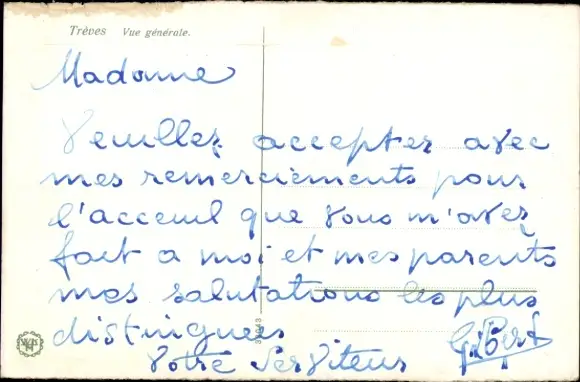 Trèves Vue générale.
Madame
Veuillez accepter avec
mes remerciements pour
l'acceuil que vous m'avez
fait a moi et mes parents
mes salutations les plus
distinguees
Votre Serviteur Gilbert